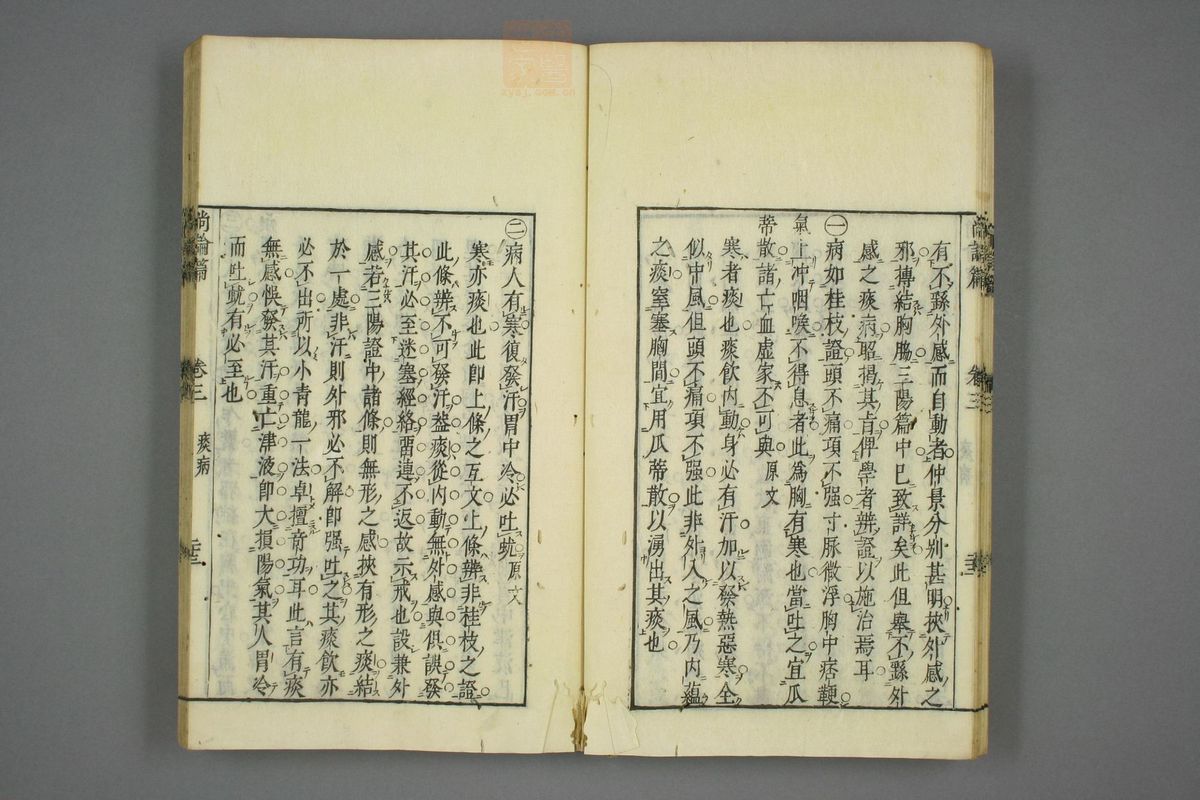 有不繇外感而自動者仲景分别甚明挾外感之
邪摶結胸脇三陽篇中已致詳矣此但舉不繇外
感之痰病昭揭其㫖俾學者辨證以施治焉耳
㊀病如桂枝證頭不痛項不强寸脉微浮胸中痞鞕
氣上冲咽喉不得息者此爲胸有寒也當吐之宜瓜
蒂散諸亡血虚家不可與原文
寒者痰也痰飮内動身必有汗加以發熱惡寒全
似中風但頭不痛項不强此非外入之風乃内藴
之痰窒塞胸間宜用瓜蒂散以湧出其痰也
尚論篇
卷三
痰病
二十三
㊁病人有寒復發汗胃中冷必吐蚘原文
寒亦痰也此卽上條之互文上條辨非桂枝之證
此條辨不可發汗葢痰從内動無外感與俱誤發
其汗必至迷塞經絡畱連不返故示戒也設兼外
感若三陽證中諸條則無形之感挾有形之痰結
於一處非汗則外邪必不解卽强吐之其痰飮亦
必不出所以小青龍一法卓擅竒功耳此言有痰
無感悞發其汗重亡津液卽大損陽氣其人胃冷
而吐蚘有必至也
尚論篇
卷三
痰病